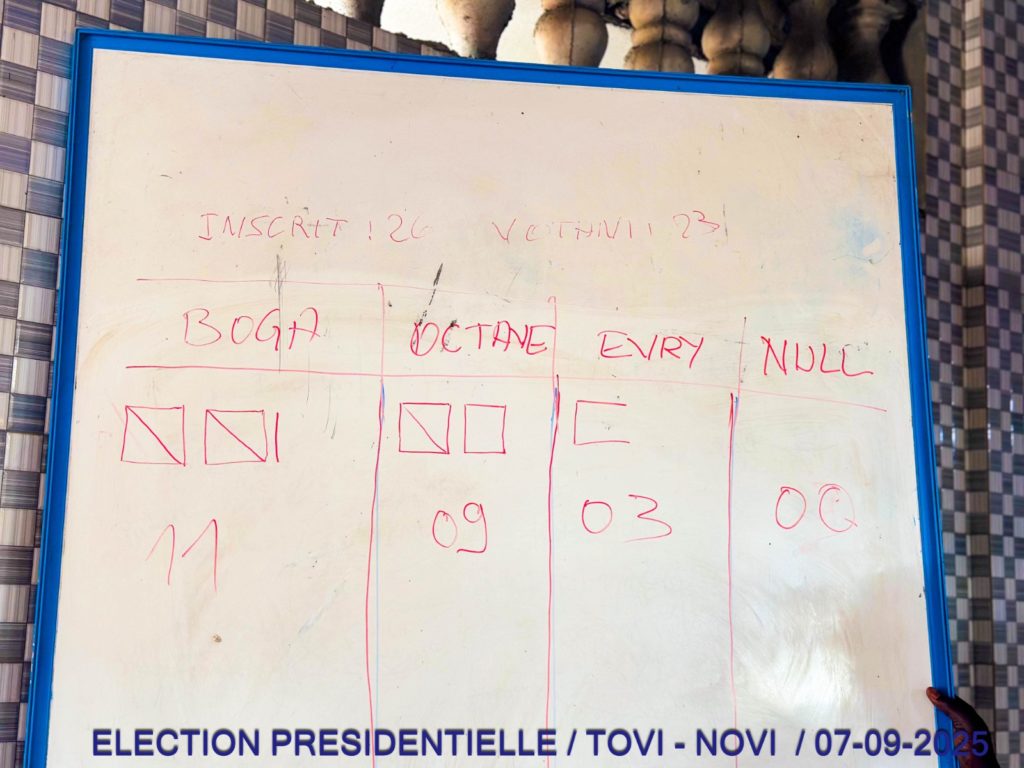 INSCRIT : 26 VOTANT : 23
BOGA OCTAVE EVRY NULL
11 09 03 00
ELECTION PRESIDENTIELLE / TOVI - NOVI / 07-09-2025